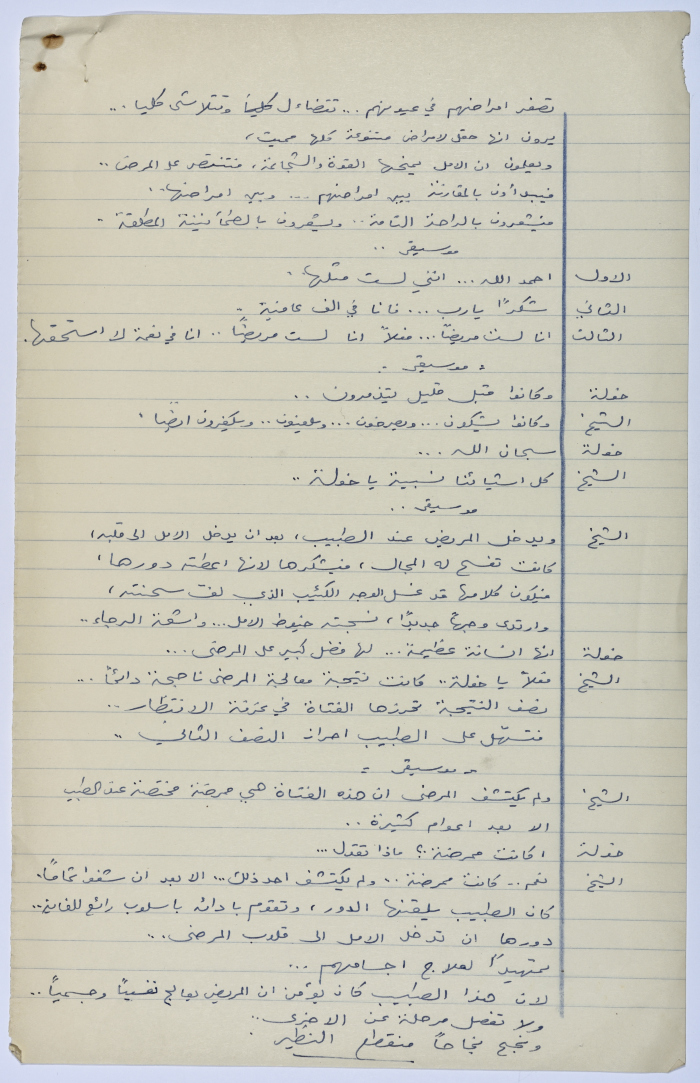 تصغر امراضهم في عيونهم ... تتضاءل كليا وتتلاشى كليا ...
يرون انها حقل لامراض متنوعة كلها مميت ،
ويعلمون ان الامل يمنحها القوة والشجاعة ، فتنتصر على المرض ..
فيبدأون بالمقارنة بين امراضهم ... وبين امراضها ..
فيشعرون بالراحة التامة .. ويشعرون بالطمأنينة المطلقة .
موسيقى ..
الاول احمد الله ... انني لست مثلها .
الثاني شكرًا يا رب ... فانا في الف عافية .
الثالث انا لست مريضًا ... فعلاً انا لست مريضًا .. انا في نعمة لا استحقها .
- موسيقى -
خولة وكانوا قبل قليل يتذمرون ..
الشيخ وكانوا يشكون ... ويصرخون ... ويلعنون .. ويكفرون ايضًا .
خولة سبحان الله ...
الشيخ كل اشيائنا نسبية يا خولة ..
موسيقى ..
الشيخ ويدخل المريض عند الطبيب ، بعد ان يدخل الامل الى قلبه ،
كانت تفسح له المجال ، فيشكرها لانها اعطته دورها ،
فيكون كلامها قد غسل الوجه الكئيب الذي لف سحنته ،
وارتدى وجهًا جديدًا ، نسجته خيوط الامل ... واشعة الرجاء ..
خولة انها انسانة عظيمة ... لها فضل كبير على المرضى ...
الشيخ فعلاً يا خولة .. كانت نتيجة معالجة المرضى ناجحة دائمًا ...
نصف النتيجة تحرزها الفتاة في غرفة الانتظار ..
فتسهّل على الطبيب احراز النصف الثاني ..
- موسيقى -
الشيخ ولم يكتشف المرضى ان هذه الفتاة هي ممرضة مختصة عند الطبيب
الا بعد اعوام كثيرة ..
خولة اكانت ممرضة ؟ ماذا تقول ...
الشيخ نعم .. كانت ممرضة .. ولم يكتشف احد ذلك ... الا بعد ان شفوا تمامًا .
كان الطبيب يلقنها الدور ، وتقوم بادائه باسلوب رائع للغاية ..
دورها ان تدخل الامل الى قلوب المرضى ...
تمهيدًا لعلاج اجسامهم ...
لان هذا الطبيب كان يؤمن ان المريض يعالج نفسيًا وجسميًا ..
ولا تفصل مرحلة عن الاخرى ..
ونجح نجاحًا منقطع النظير .